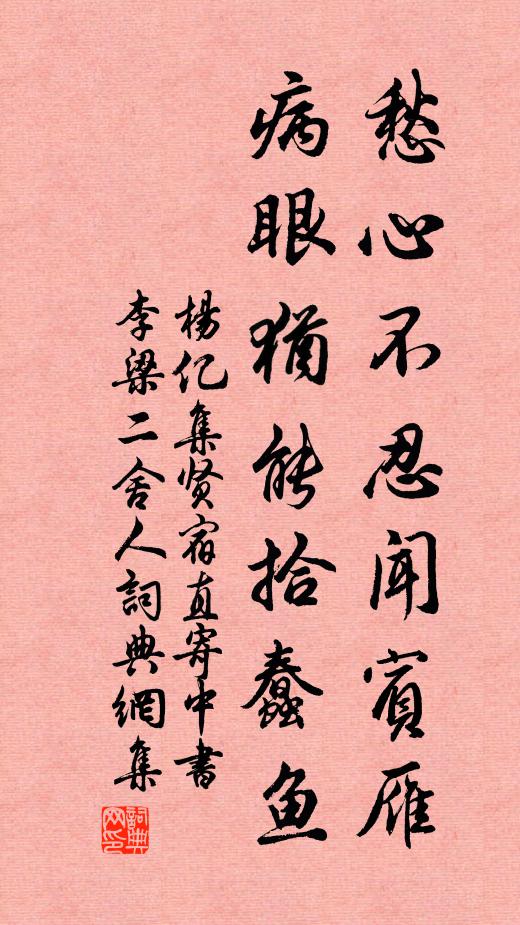 愁心不忍闻賓雁
病眼猶能拾蠹鱼
楊亿集贤宿直寄中書
李梁二舍人詞典網集
詞典网印